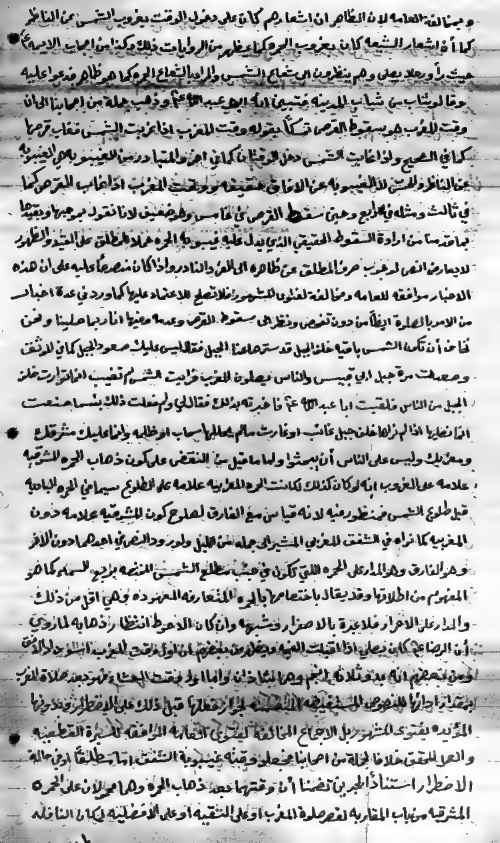 ومخالفة العامة لان الظاهر ان اشعارهم كان على دخول الوقت بغروب الشمس عن الناظر
كما أن اشعار الشيعة كان بغروب الحمرة كما يظهر من الروايات ذلك وكذا من اصحاب الائمة ع
حيث رأوا رجلا يصلى وهم ينظرون الى شعاع الشمس والمراد بالشعاع الحمرة كما هو ظاهر فدعوا عليه
وقالوا شاب من شباب المدينة فتبين انه ابو عبد الله ع وذهب جملة من اصحابنا الى ان
وقت المغرب هو سقوط القرص تمسكا بقوله وقت المغرب اذا غربت الشمس فغاب قرصها
كما في الصحيح واذا غابت الشمس دخل الوقتان كما في اخر والمتبادر من الغيبوبة هى الغيبوبة
عن الناظر والحس لا الغيبوبة عن الافاق حقيقة ووقت المغرب اذا غاب القرص كما
في ثالث ومثله في رابع وحين سقط القرص في خامس وهو ضعيف لانا نقول بموجبها
بما قدمنا من ارادة السقوط الحقيقي الذي يدل عليه غيبوبة الحمرة حملا للمطلق على المقيد والظهور
لا يعارض النص لوجوب صرف المطلق عن ظاهره الى الفرد النادر واذا كان منصوصا عليه على ان هذه
الاخبار موافقة للعامة ومخالفة لفتوى المشهور فلا تصلح للاعتماد عليها كما ورد في عدة اخبار
من الامر بالصلوة ايضا من دون تفحص ونظر الى سقوط القرص وعدمه وفيها انا ربما صلينا ونحن
نخاف أن تكون الشمس باقية خلف الجبل قد سترها عنا الجبل فقال ليس عليك صعود الجبل كما في الموثق
وصعدت مرة جبل ابي قبيس والناس يصلون المغرب فرايت الشمس لم تغب انما توارت خلف
الجبل من الناس فلقيت ابا عبد الله ع فاخبرته بذلك فقال لي ولم فعلت ذلك بئس ما صنعت
انما تصليها اذا لم ترها خلف جبل غابت او غارت ما لم يجللها سحاب او ظلمة وانما عليك مشرقك
ومغربك وليس على الناس أن يبحثوا واما ما قيل من النقض على كون ذهاب الحمرة المشرقية
علامة على الغروب بانه لو كان كذلك لكانت الحمرة المغربية علامة على الطلوع سيما في الحمرة البادية
قبل طلوع الشمس فمنظور فيه لانه قياس مع الفارق لصلوح كون المشرقية علامة دون
المغربية كما نراه في الشفق المغربي المشير الى جملة من الليل ولورود النص في احدهما دون الاخر
وهو الفارق وهو المدار على الحمرة اللتي تكون في جنب مطلع الشمس لا منضمة بربع السماء كما هو
المفهوم من اطلاقها وقد يقال باختصاصها بالحمرة المتعارفة المعهودة وهي اقل من ذلك
والمدار على الاحرار فلا عبرة بالاصفرار وشبهه وان كان الاحوط انتظار ذهابه لما روي
أن الرضا ع كان يصلي اذا اقبلت الفحمة
وعن بعضهم انه بدو ثلاثة انجم وهما شاذان واما اول وقت العشاء فهو بعد صلاة المغرب
بمقدار ادائها للنصوص المستفيضة لجواز فعلها قبل ذلك على الاضطرار
المؤيده بفتوى المشهور بل الاجماع المخالفة لفتوى العامة الموافقة للسيرة القطعية
والعمل المحقق خلافا لجملة من اصحابنا فجعلوا وقته غيبوبة الشفق اما مطلقا او في حالة
الاضطرار استنادا لخبرين تضمنا أن وقتهما بعد ذهاب الحمرة وهما محمولان على الحمرة
المشرقية من باب المقاربة لقصر صلوة المغرب او على التقية او على الافضلية لمكان النافلة